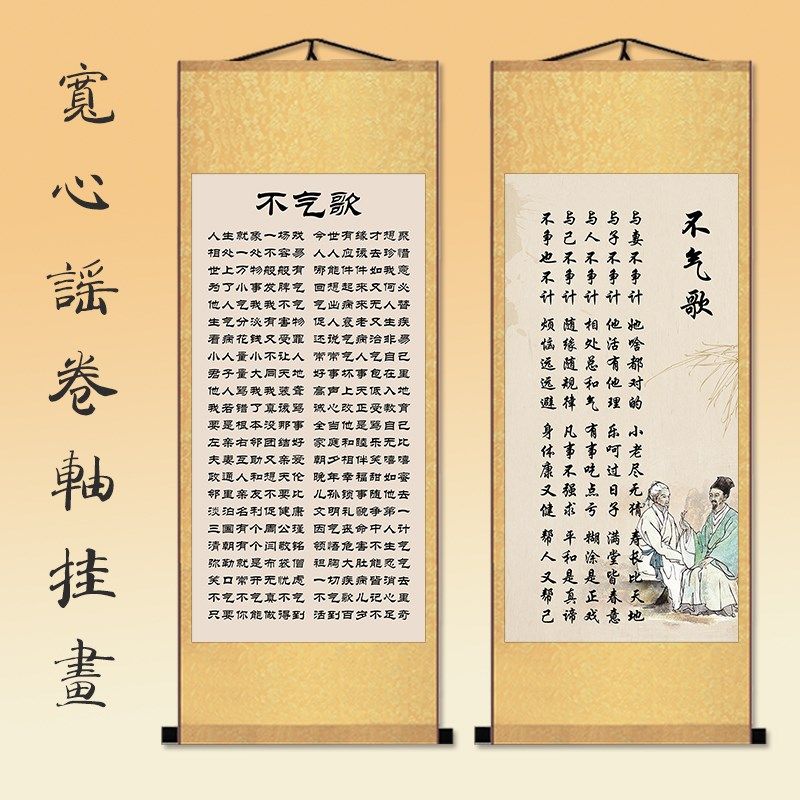 寬心謡卷軸挂畫
不气歌
人生就象一场戏 今世有缘才想聚
相处一处不容易 人人应该去珍惜
世上万物般般有 哪能件件如我意
为了小事发脾气 回想起来又何必
他人气我我不气 气出病来无人替
生气分淡有害物 促人衰老又生疾
看病花钱又受罪 还说气病治非易
小人量小不让人 常常气人气自己
君子量大同天地 好事坏事包在里
他人骂我我装聋 高声上天低入地
我若错了真该骂 诚心改正受教育
要是根本没那事 全当他是骂自己
左亲右邻团结好 家庭和睦乐无比
夫妻互助又亲爱 朝夕相伴笑嘻嘻
政通人和想天伦 晚年幸福甜如蜜
邻里亲友不要比 儿孙琐事随他去
淡泊名利促健康 文明礼貌争第一
三国有个周公瑾 因气丧命中人计
清朝有个闫敬铭 领悟危害不生气
弥勒就是布袋僧 袒胸大肚能忍气
笑口常开无忧虑 一切疾病皆消去
不气不气真不气 不气歌儿记心里
只要你能做得到 活到百岁不足奇
不气歌
与妻不争计 她啥都对的 小老尽无猜 寿长比天地
与子不争计 他活有他理 乐呵过日子 满堂皆春意
与人不争计 相处总和气 有事吃点亏 糊涂是正戏
与己不争计 随缘随规律 凡事不强求 平和是真谛
不争也不计 烦恼远远避 身体康又健 帮人又帮己